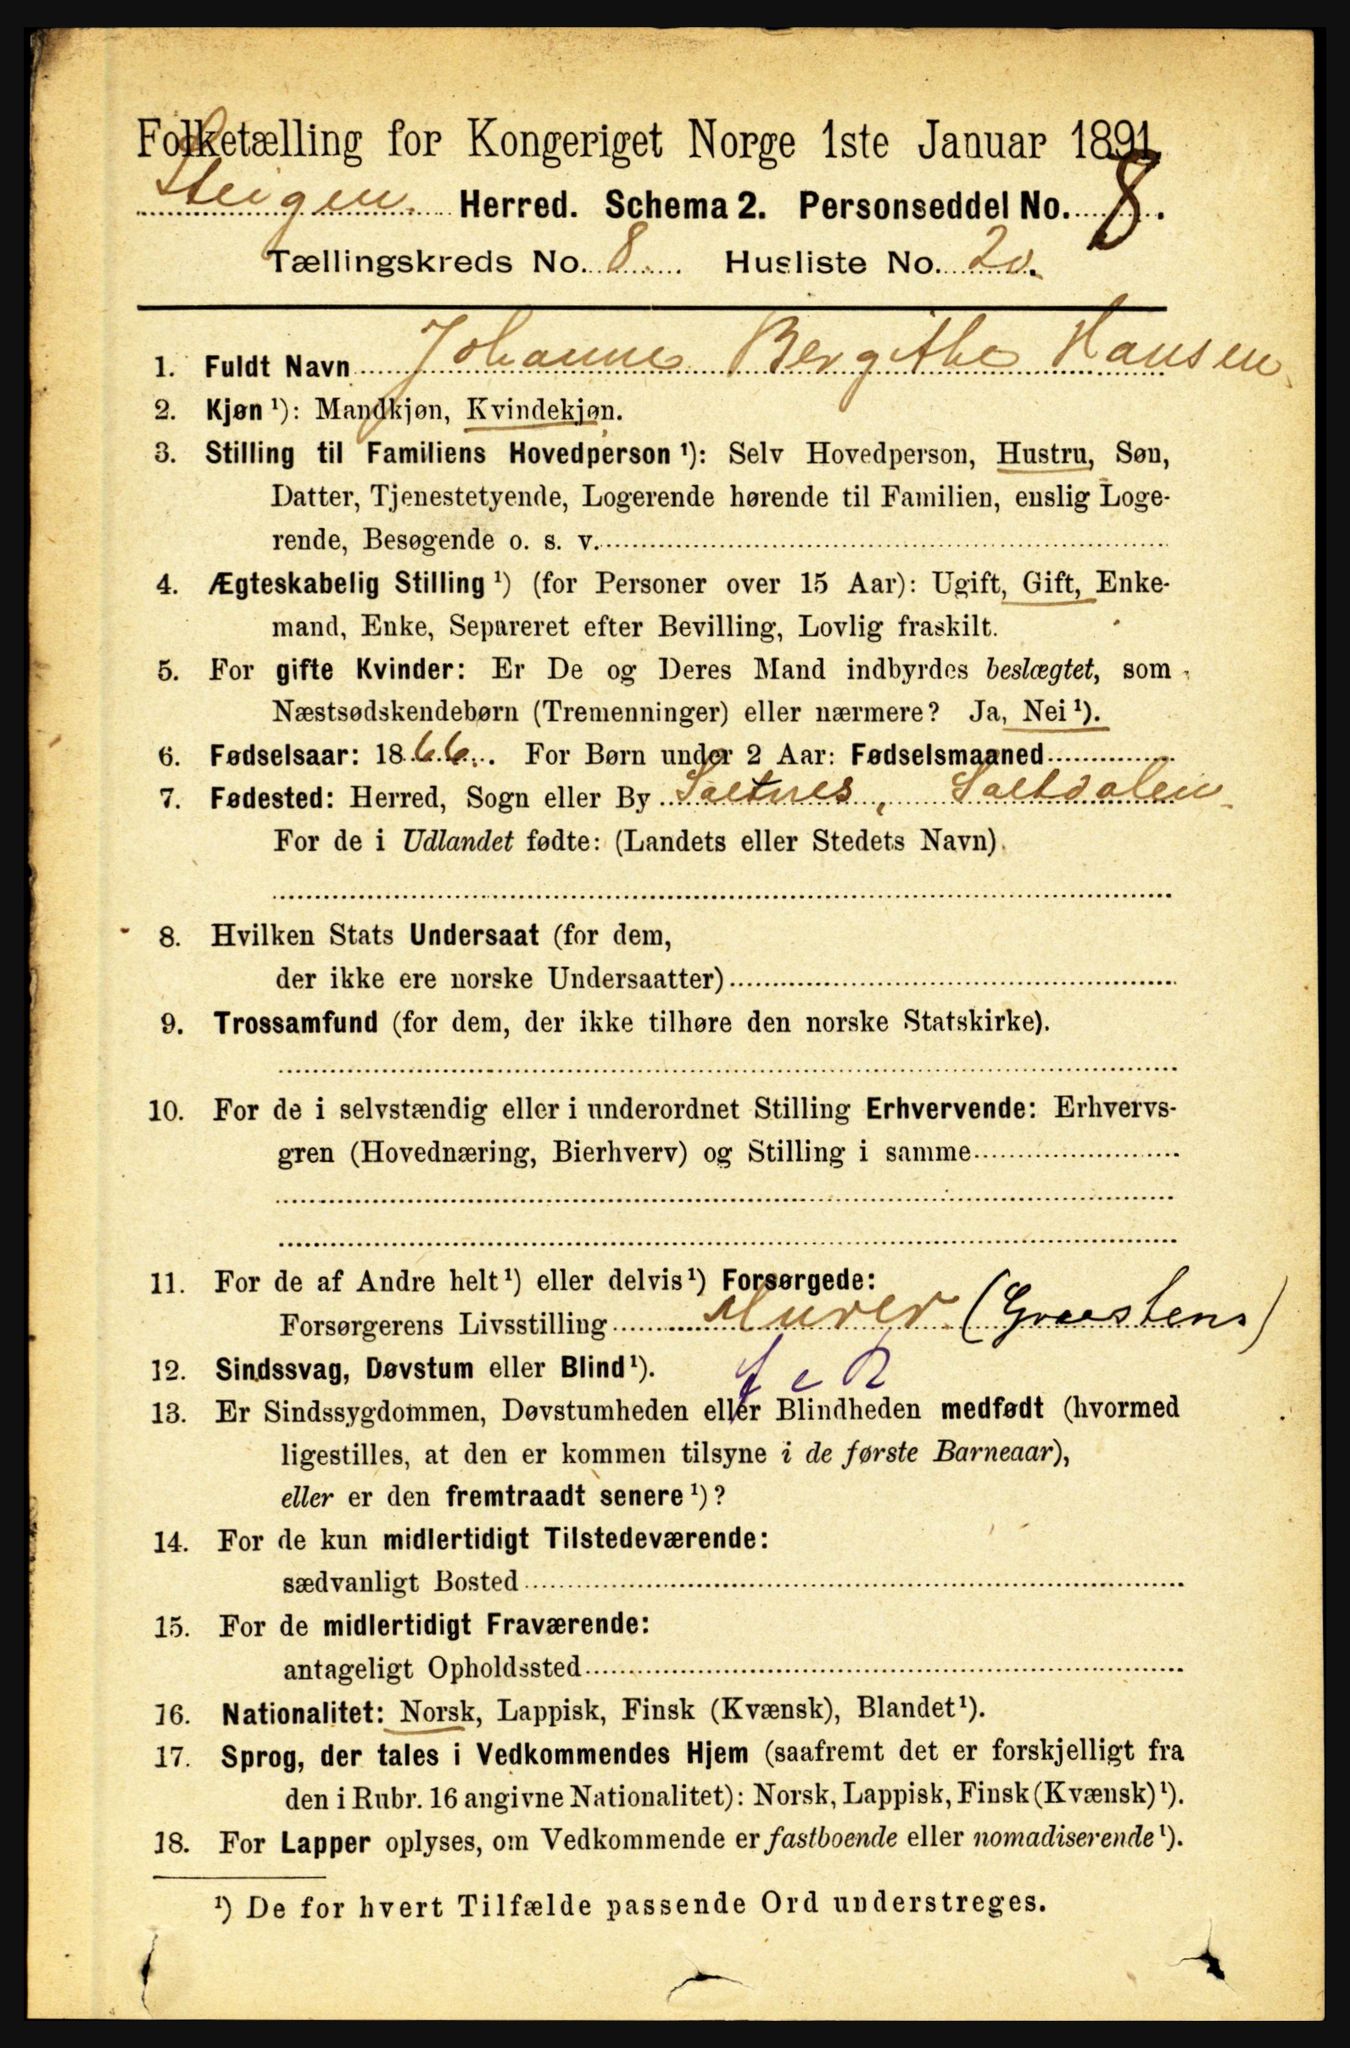 Folketælling for Kongeriget Norge 1ste Januar 1891.
Steigen. Herred. Schema 2. Personseddel No. 8.
Tællingskreds No. 8. Husliste No. 20.
1. Fuldt Navn Johanne Bergithe Hansen.
2. Kjøn ¹): Mandkjøn, Kvindekjøn.
3. Stilling til Familiens Hovedperson ¹): Selv Hovedperson, Hustru, Søn,
Datter, Tjenestetyende, Logerende hørende til Familien, enslig Loge-
rende, Besøgende o. s. v.
4. Ægteskabelig Stilling ¹) (for Personer over 15 Aar): Ugift, Gift, Enke-
mand, Enke, Separeret efter Bevilling, Lovlig fraskilt.
5. For gifte Kvinder: Er De og Deres Mand indbyrdes beslægtet, som
Næstsødskendebørn (Tremenninger) eller nærmere? Ja, Nei ¹).
6. Fødselsaar: 1866. For Børn under 2 Aar: Fødselsmaaned
7. Fødested: Herred, Sogn eller By Saltnes, Saltdalen.
For de i Udlandet fødte: (Landets eller Stedets Navn)
8. Hvilken Stats Undersaat (for dem,
der ikke ere norske Undersaatter)
9. Trossamfund (for dem, der ikke tilhøre den norske Statskirke).
10. For de i selvstændig eller i underordnet Stilling Erhvervende: Erhvervs-
gren (Hovednæring, Bierhverv) og Stilling i samme
11. For de af Andre helt ¹) eller delvis ¹) Forsørgede:
Forsørgerens Livsstilling Murer (Graastens)
12. Sindssvag, Døvstum eller Blind ¹).
13. Er Sindssygdommen, Døvstumheden eller Blindheden medfødt (hvormed
ligestilles, at den er kommen tilsyne i de første Barneaar),
eller er den fremtraadt senere ¹)?
14. For de kun midlertidigt Tilstedeværende:
sædvanligt Bosted
15. For de midlertidigt Fraværende:
antageligt Opholdssted
16. Nationalitet: Norsk, Lappisk, Finsk (Kvænsk), Blandet ¹).
17. Sprog, der tales i Vedkommendes Hjem (saafremt det er forskjelligt fra
den i Rubr. 16 angivne Nationalitet): Norsk, Lappisk, Finsk (Kvænsk) ¹).
18. For Lapper oplyses, om Vedkommende er fastboende eller nomadiserende ¹).
¹) De for hvert Tilfælde passende Ord understreges.